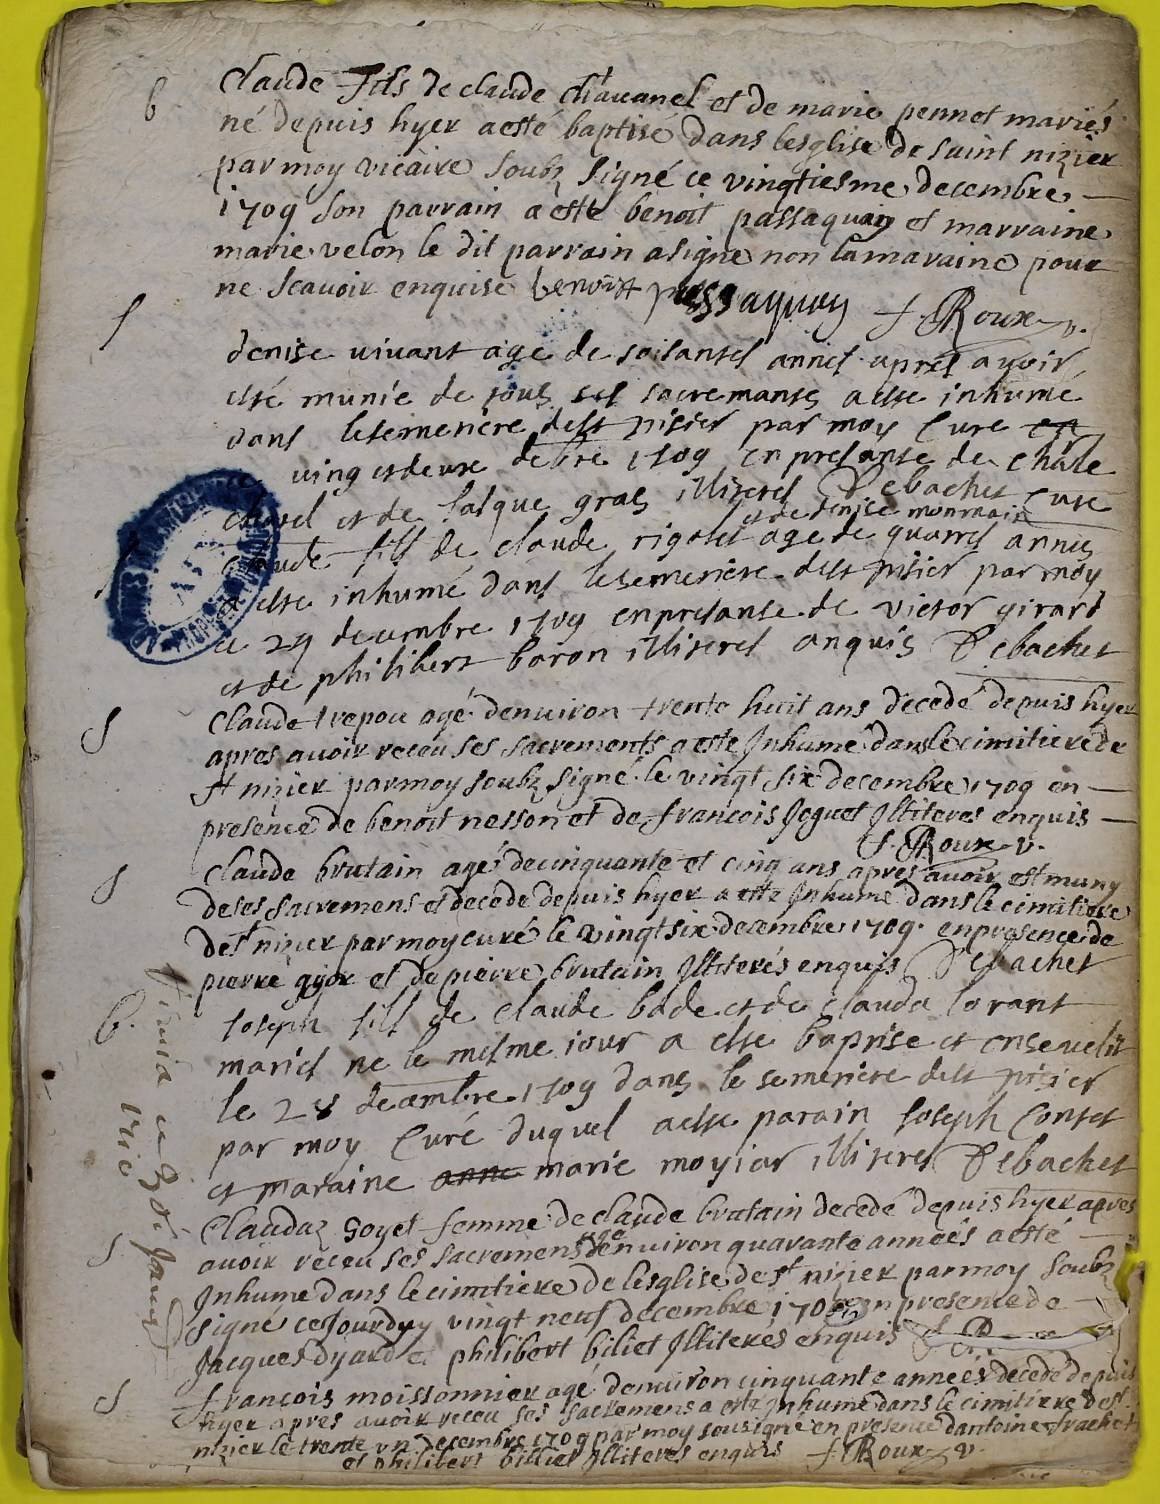 b
Claude fils de claude chavanel et de marie pennet mariés
né depuis hyer a esté baptisé dans lesglise de saint nizier
par moy vicaire soubz signé ce vingtiesme decembre
1709 son parrain a esté benoit passaquay et marraine
marie velon le dit parrain a signé non la maraine pour
ne scavoir enquise benoist passaquay f. Roux v.
S
denise vivant agé de soisantes annés apres avoir
esté munie de tous ses sacremants a esté inhumé
dans le semetiere de st nisier par moy Curé
ving et deuxe debre 1709 en presanse de
et de gras illiteres Debachet Curé
et de denise monmain
Claude fils de claude rigolet age de quatres annés
a esté inhumé dans le semetiere de st nisier par moy
ce 24 decembre 1709 en presanse de victor girard
et de philibert baron illiteres anquis Debachet
S
Claude trepou agé denviron trente huit ans décedé depuis hyer
apres avoir receu ses sacrements a esté Inhumé dans le cimitiere de
st nizier par moy soubz signé le vingt six decembre 1709 en
presence de benoit nesson et de francois Joguet Illiteres enquis
f. Roux v.
S
Claude brutain agé de cinquante et cinq ans apres avoir est muny
de ses sacremens et décedé depuis hyer a esté Inhumé dans le cimitiere
de st nizier par moy curé le vingt six decembre 1709 en presence de
pierre gyor et de pierre brutain Illiterés enquis Debachet
b.
Joseph fils de claude bade et de clauda lorant
mariés ne le mesme iour a esté baptise et ensevelit
le 28 decembre 1709 dans le semetiere de st nisier
par moy Curé duquel a esté parain Joseph Contet
et maraine anne marie moyiar illiteres Debachet
S
Claudaz Goyet femme de claude brutain decedé depuis hyer apres
avoir receu ses sacremens agé denviron quarante années a esté
Inhumé dans le cimitiere de lesglise de st nizier par moy soubz
signé cejourduy vingt neuf decembre 1709 en presence de
Jacques dyard et philibert biliet Illiteres enquis
S
francois moissonnier agé denviron cinquante années décedé depuis
hyer apres avoir receu ses sacremens a esté Inhumé dans le cimitiere de st
nizier le trente un decembre 1709 par moy sousigné en presence dantoine frachet
et philibert billiet Illiteres enquis f. Roux v.